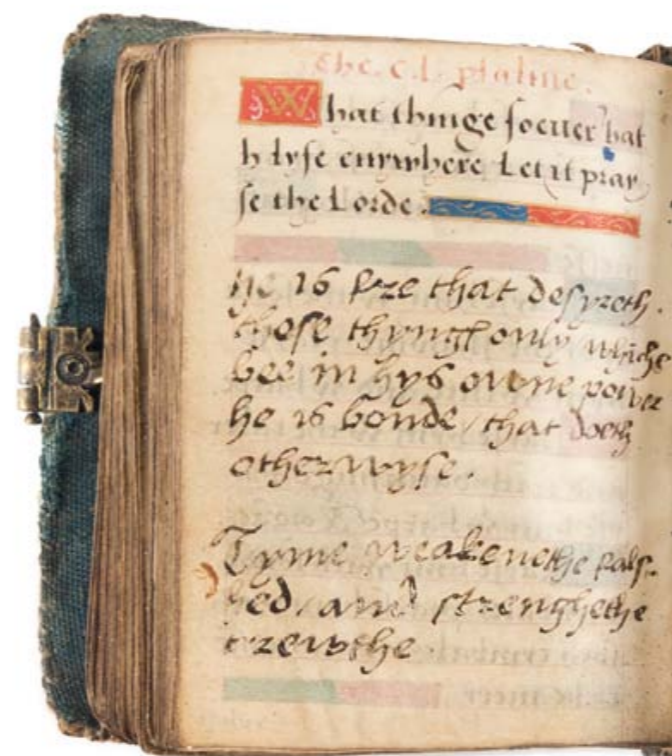 the. c.l. psalme.
What thinge soeuer hat
h lyfe enywhere Let it pray
se the Lorde.
he is fre that desyreth
those thyngs only which
bee in hys owne power
he is bonde / that doeth
otherwyse.
Tyme weakenethe fals-
hed, and strenghethe
trewthe